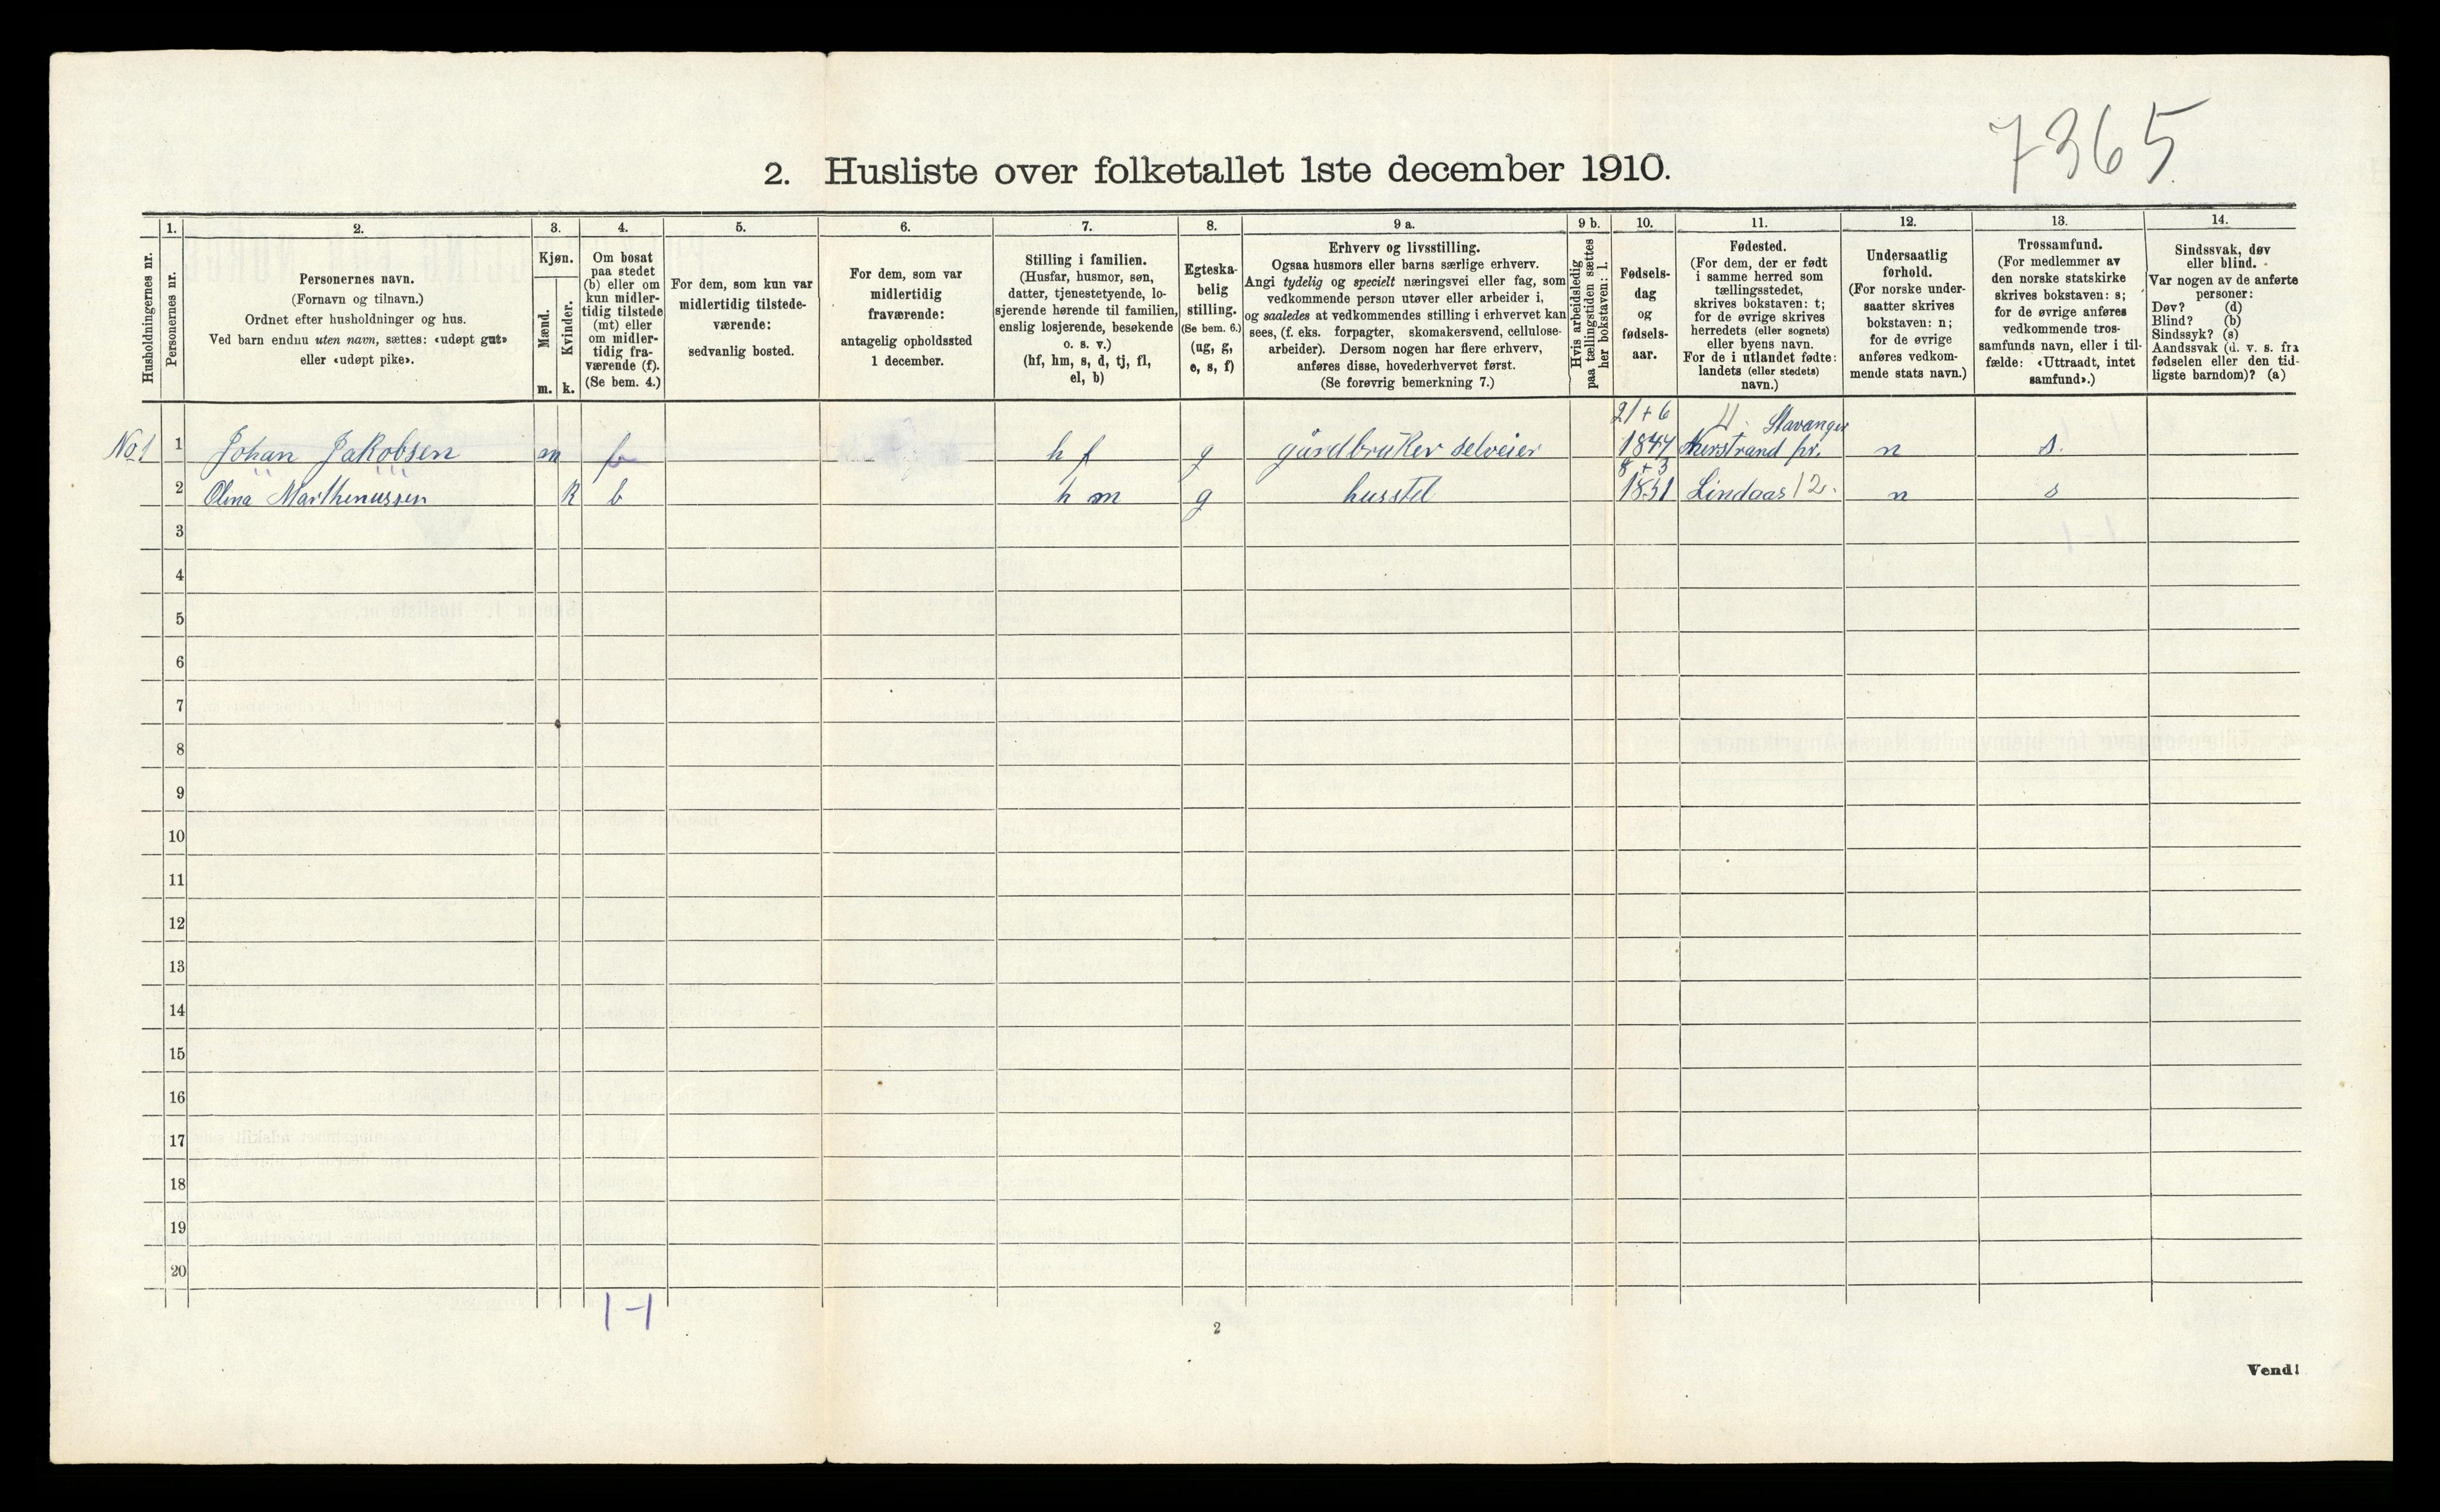 7365
2. Husliste over folketallet 1ste december 1910.
Husholdningernes nr.
1.
Personernes nr.
2.
Personernes navn.
(Fornavn og tilnavn.)
Ordnet efter husholdninger og hus.
Ved barn endnu uten navn, sættes: «udøpt gut»
eller «udøpt pike».
3.
Kjøn.
Mænd.
Kvinder.
m. k.
4.
Om bosat
paa stedet
(b) eller om
kun midler-
tidig tilstede
(mt) eller
om midler-
tidig fra-
værende (f).
(Se bem. 4.)
5.
For dem, som kun var
midlertidig tilstede-
værende:
sedvanlig bosted.
6.
For dem, som var
midlertidig
fraværende:
antagelig opholdssted
1 december.
7.
Stilling i familien.
(Husfar, husmor, søn,
datter, tjenestetyende, lo-
sjerende hørende til familien,
enslig losjerende, besøkende
o. s. v.)
(hf, hm, s, d, tj, fl,
el, b)
8.
Egteska-
belig
stilling.
(Se bem. 6.)
(ug, g,
e, s, f)
9 a.
Erhverv og livsstilling.
Ogsaa husmors eller barns særlige erhverv.
Angi tydelig og specielt næringsvei eller fag, som
vedkommende person utøver eller arbeider i,
og saaledes at vedkommendes stilling i erhvervet kan
sees, (f. eks. forpagter, skomakersvend, cellulose-
arbeider). Dersom nogen har flere erhverv,
anføres disse, hovederhvervet først.
(Se forøvrig bemerkning 7.)
9 b.
Hvis arbeidsledig
paa tællingstiden sættes
her bokstaven: l.
10.
Fødsels-
dag
og
fødsels-
aar.
11.
Fødested.
(For dem, der er født
i samme herred som
tællingsstedet,
skrives bokstaven: t;
for de øvrige skrives
herredets (eller sognets)
eller byens navn.
For de i utlandet fødte:
landets (eller stedets)
navn.)
12.
Undersaatlig
forhold.
(For norske under-
saatter skrives
bokstaven: n;
for de øvrige
anføres vedkom-
mende stats navn.)
13.
Trossamfund.
(For medlemmer av
den norske statskirke
skrives bokstaven: s;
for de øvrige anføres
vedkommende tros-
samfunds navn, eller i til-
fælde: «Uttraadt, intet
samfund».)
14.
Sindssvak, døv
eller blind.
Var nogen av de anførte
personer:
Døv? (d)
Blind? (b)
Sindssyk? (s)
Aandssvak (d. v. s. fra
fødselen eller den tid-
ligste barndom)? (a)
21 + 6 11. Stavanger
No 1 1 Johan Jakobsen m b h f g gårdbruker selveier 1844 Nerstrand pr. n s.
8 + 3
2 Olina Marthenussen k b h m g husstel 1851 Lindaas 12. n s
3
4
5
6
7
8
9
10
11
12
13
14
15
16
17
18
19
20
1-1
2
Vend!